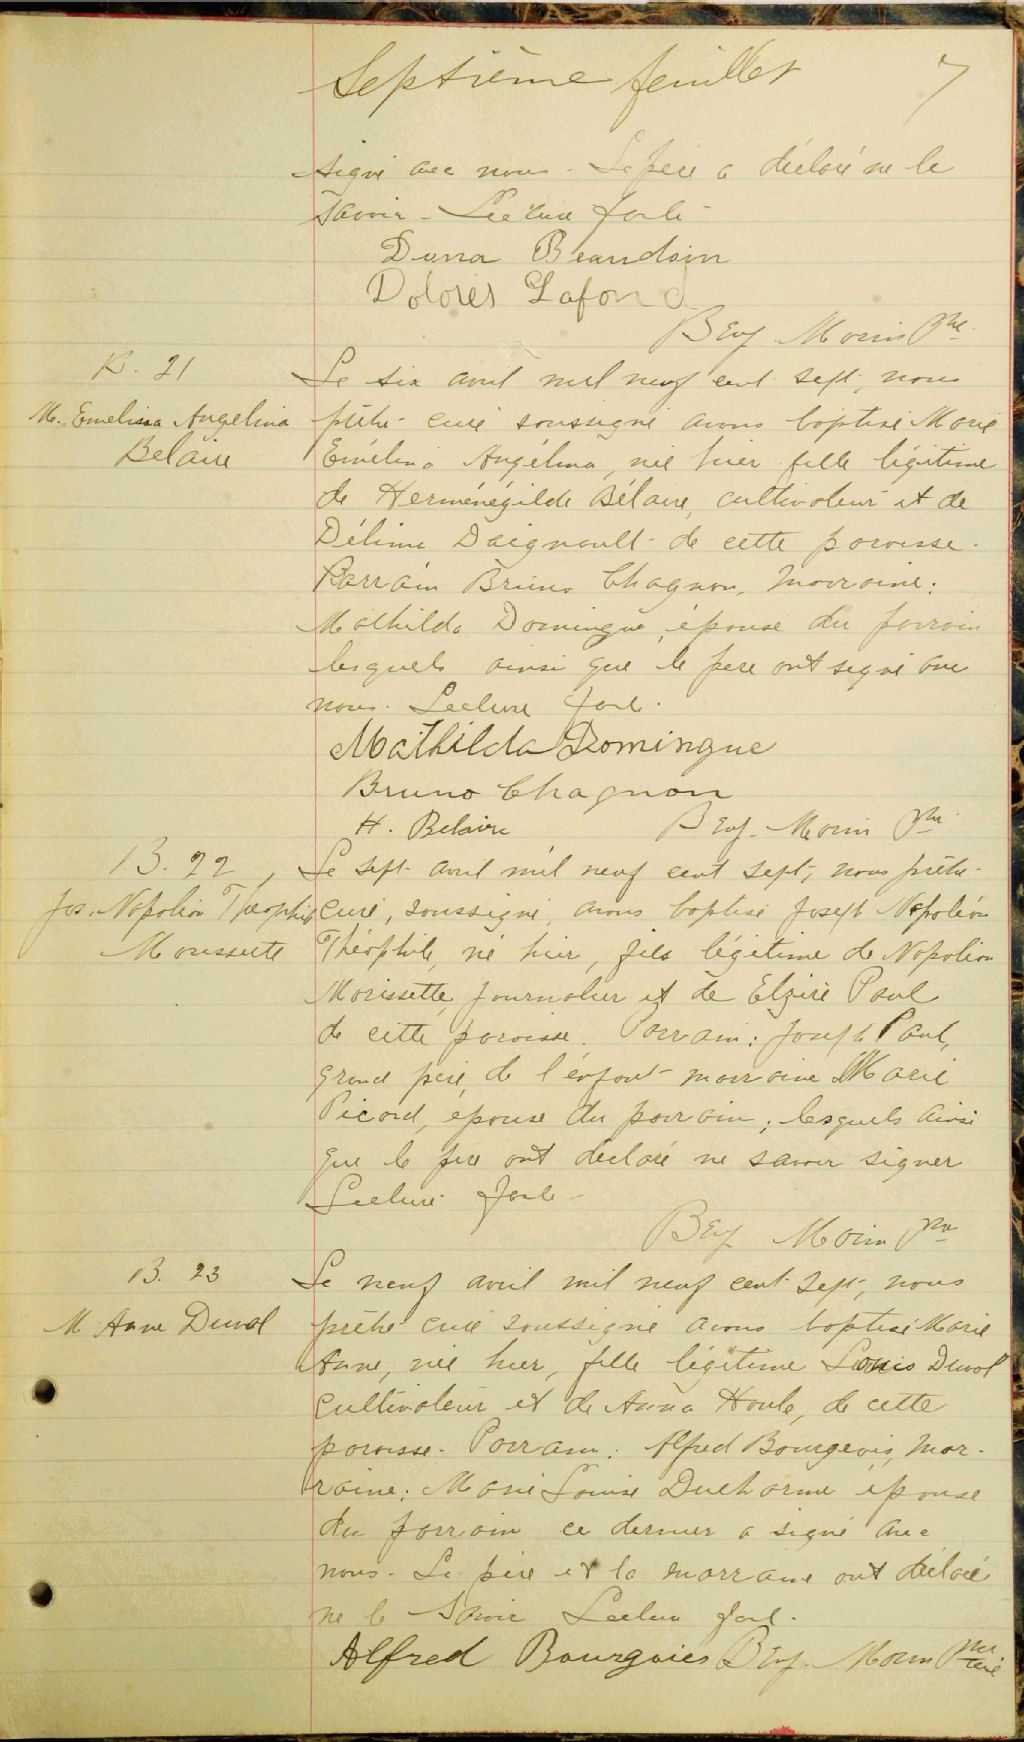 Septième feuillet 7
signé avec nous - Le père a déclaré ne le
savoir - Lecture faite -
Dona Beaudoin
Dolorès Lafond
Benj. Morin Ptre
B. 21
M. Emelissa Angelina
Belaire
Le six avril mil neuf cent sept, nous
prêtre curé soussigné avons baptisé Marie
Emélina Angélina, née hier fille légitime
de Herménégilde Bélaire, cultivateur et de
Délima Daignault de cette paroisse.
Parrain Bruno Chagnon, marraine:
Mathilda Domingue, épouse du parrain
lesquels ainsi que le père ont signé avec
nous. Lecture faite.
Mathilda Domingue
Bruno Chagnon
H. Belaire Benj. Morin Ptre
B. 22
Jos. Napoléon Théophile
Morissette
Le sept avril mil neuf cent sept, nous prêtre
curé, soussigné, avons baptisé Joseph Napoléon
Théophile, né hier, fils légitime de Napoléon
Morissette, journalier et de Elzire Paul
de cette paroisse. Parrain: Joseph Paul,
grand père de l'enfant marraine Marie
Picard, épouse du parrain; lesquels ainsi
que le père ont déclaré ne savoir signer
Lecture faite -
Benj Morin Ptre
B. 23
M Anne Duval
Le neuf avril mil neuf cent sept, nous
prêtre curé soussigné avons baptisé Marie
Anne, née hier, fille légitime Louis Duval
cultivateur et de Anna Houle, de cette
paroisse. Parrain: Alfred Bourgeois, mar-
raine: Marie Louise Ducharme épouse
du parrain ce dernier a signé avec
nous. Le père et la marraine ont déclaré
ne le savoir Lecture faite.
Alfred Bourgoies Benj. Morin Ptre
curé